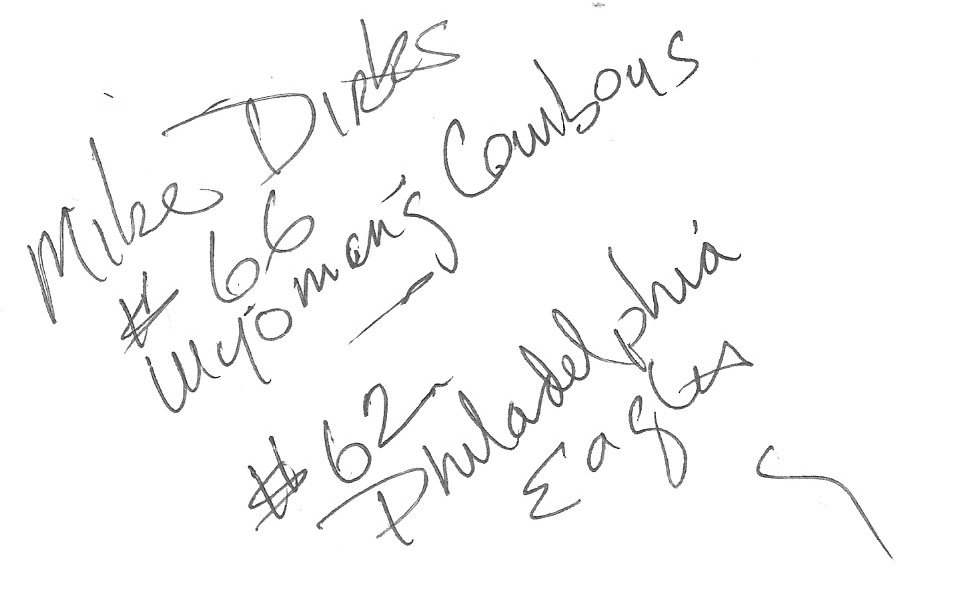 Mike Dirks
# 66
Wyoming Cowboys
#62
Philadelphia
Eagles